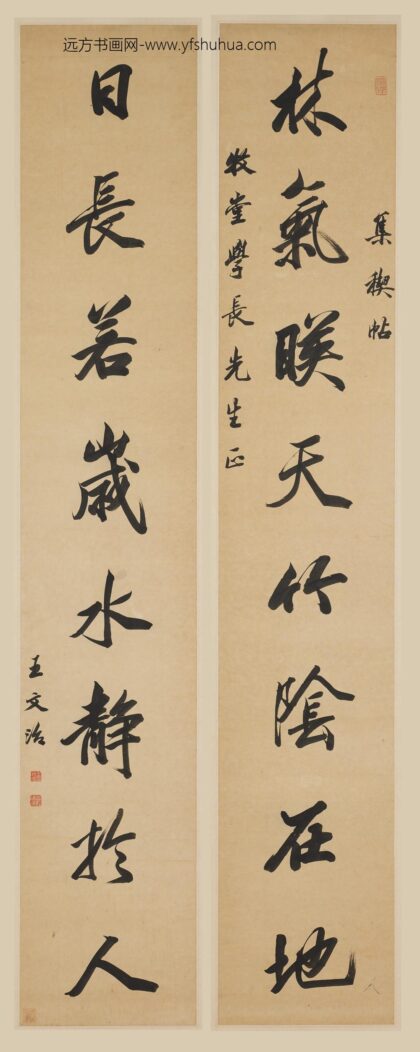 远方书画网-www.yfshuhua.com
集禊帖
林氣暎天竹陰在地
牧堂學長先生正
日長若歲水静於人
王文治